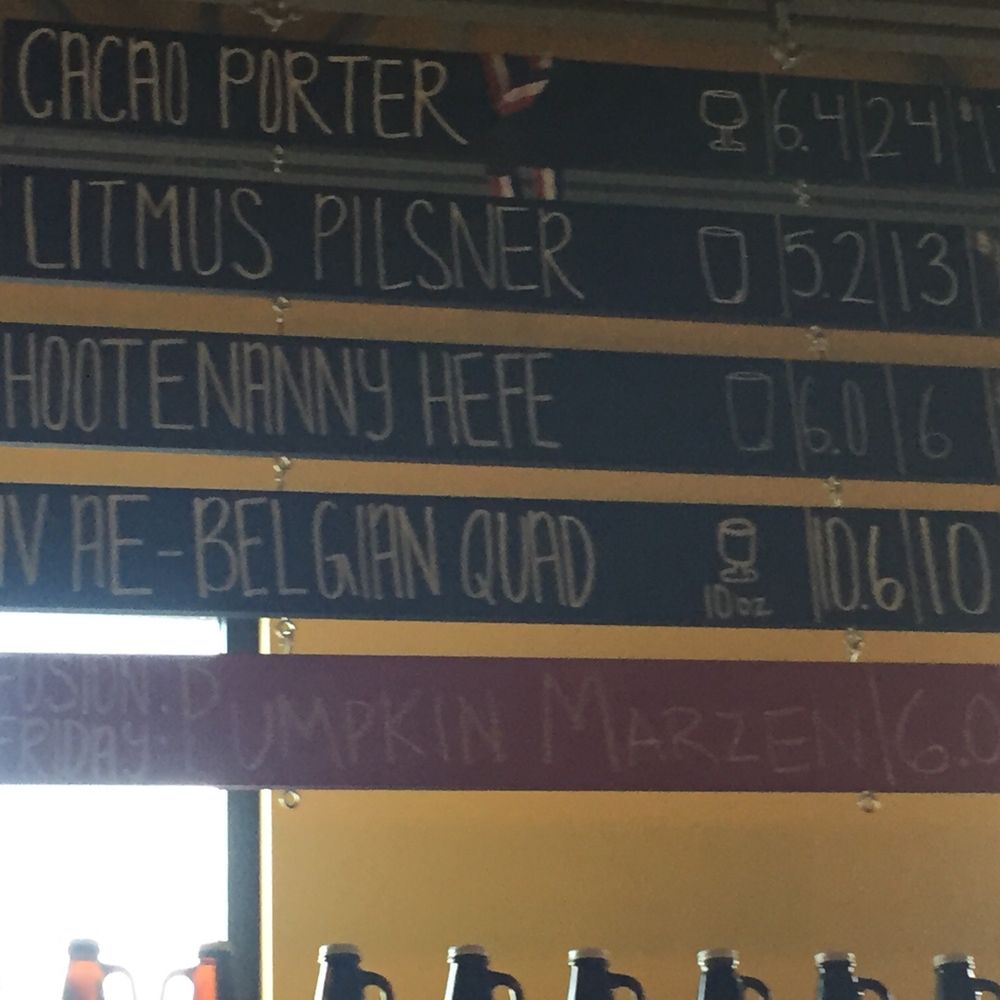 CACAO PORTER 6.4 24
LITMUS PILSNER 5.2 13
HOOTENANNY HEFE 6.0 6
IV AE-BELGIAN QUAD 10oz 10.6 10
FUSION:
FRIDAY: PUMPKIN MARZEN 6.0